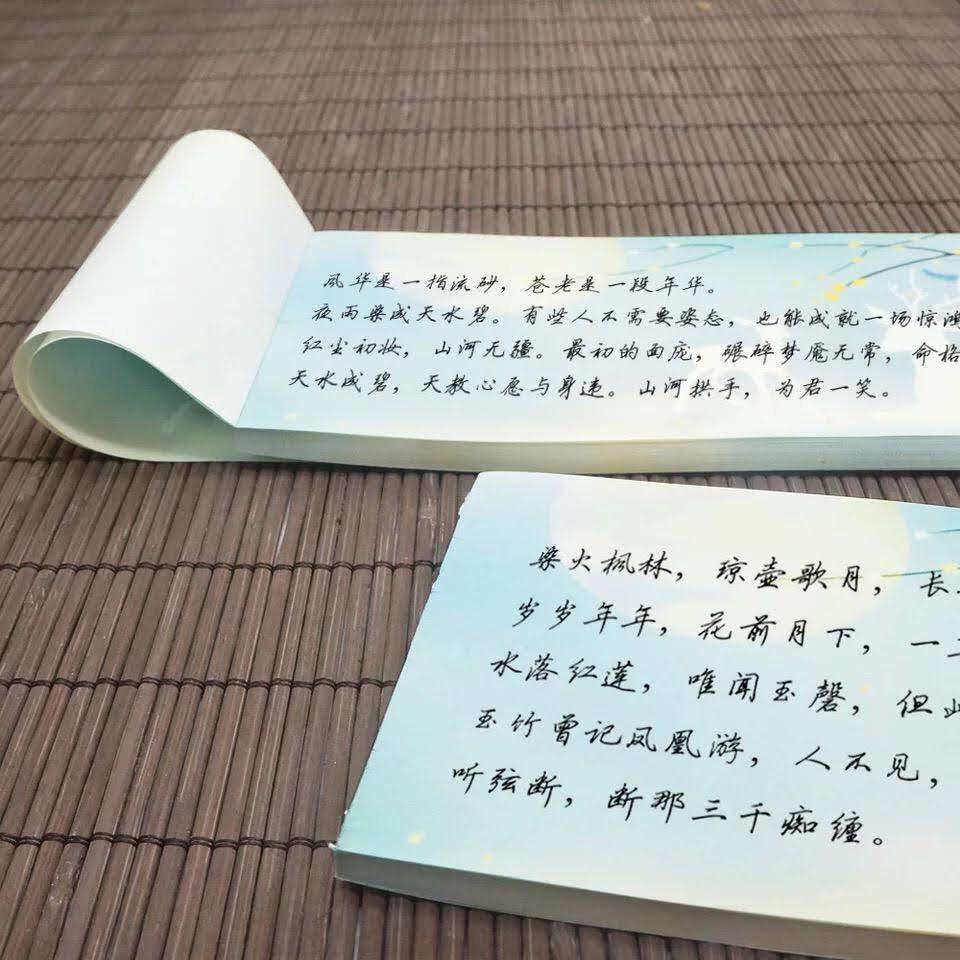 风华是一指流砂，苍老是一段年华。
夜雨染成天水碧。有些人不需要姿态，也能成就一场惊鸿
红尘初妆，山河无疆。最初的面庞，碾碎梦魇无常，命格
天水成碧，天教心愿与身违。山河拱手，为君一笑。
染火枫林，琼壶歌月，长
岁岁年年，花前月下，一
水落红莲，唯闻玉磬，但此
玉竹曾记凤凰游，人不见，
听弦断，断那三千痴缠。